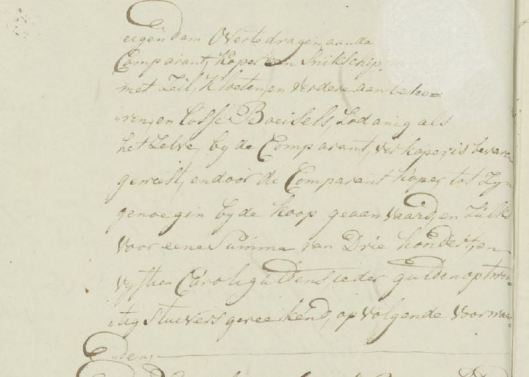 eigendom Overtedragen aan de
Comparant, Koper een Snikschip,
met Zeil, en Verdere aan behoo
ren, en losse Boeisels, Zodanig als
het Zelve, by de Comparant, Verkoper is bevaren
geweest, en door de Comparant Koper tot Zyn
genoegen by de Koop geaanvaard, en Zulks
Voor eene Summa van Drie hondert, en
vyftien Caroliguldens ieder gulden op twin
tig Stuivers gereekend, op volgende Voorwaa
rdens,